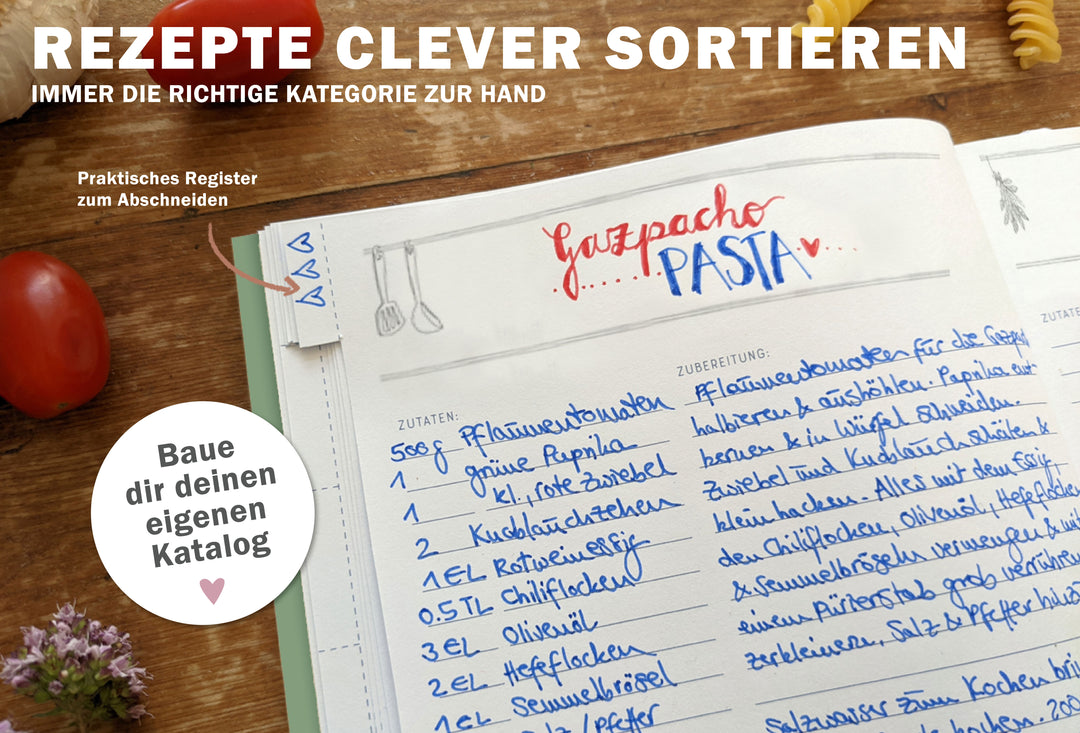 REZEPTE CLEVER SORTIEREN
IMMER DIE RICHTIGE KATEGORIE ZUR HAND
Praktisches Register
zum Abschneiden
Baue
dir deinen
eigenen
Katalog
Gazpacho
PASTA
ZUTATEN:
500g Pflaumentomaten
1 grüne Paprika
1 kl., rote Zwiebel
2 Knoblauchzehen
1 EL Rotweinessig
0.5 TL Chiliflocken
3 EL Olivenöl
2 EL Hefeflocken
1 EL Semmelbrösel
Salz / Pfeffer
ZUBEREITUNG:
Pflaumentomaten für die
halbieren & aushöhlen. Paprika ent
kernen & in Würfel schneiden.
Zwiebel und Knoblauch schälen &
klein hacken. Alles mit dem Essig,
den Chiliflocken, Olivenöl, Hefeflocken
& Semmelbröseln vermengen & mit
einem Pürierstab grob verrühren
zerkleinern, Salz & Pfeffer
Salzwasser zum Kochen
kochen. 200
ZUTATE